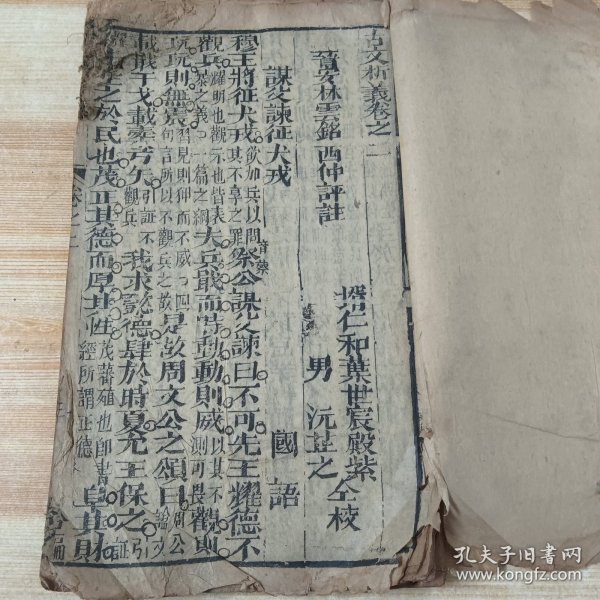 古文析義卷之二
晉安林雲銘西仲評註
壻仁和葉世宸殿紫
男 沅芷之
仝校
謀父諫征犬戎 國語
穆王將征犬戎欲加兵以問其不享之罪祭音蔡公謀父諫曰不可先王耀德不
觀兵耀明也觀示也皆表暴之義一篇之綱夫兵戢而時動動則威以其不測可畏觀則
玩玩則無震句言所以不觀兵之故是故周文公之頌曰
載戢干戈載櫜弓矢引証不觀兵我求懿德肆於時夏允王保之引証
之於民也茂正其德而厚其性茂蕃殖也即書經所謂正德阜其財
孔夫子旧书网
www.kongfz.com